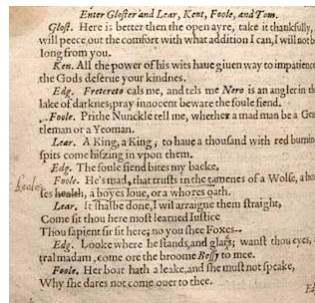 Enter Gloster and Lear, Kent, Foole, and Tom.
Glost. Here is better then the open ayre, take it thankfully,
will peece out the comfort with what addition I can, I will not b
long from you.
Ken. All the power of his wits haue giuen way to impatience
the Gods deserue your kindnes.
Edg. Fretereto cals me, and tels me Nero is an angler in th
lake of darknes, pray innocent beware the foule fiend.
Foole. Prithe Nunckle tell me, whether a mad man be a Gen
tleman or a Yeoman.
Lear. A King, a King; to haue a thousand with red burnin
spits come hiszing in vpon them.
Edg. The foule fiend bites my backe,
Foole. He's mad, that trusts in the tamenes of a Wolfe, a ho
ses health, a boyes loue, or a whores oath.
Lear. It shalbe done, I wil arraigne them straight,
Come sit thou here most learned Iustice
Thou sapient sir sit here, no you shee Foxes--
Edg. Looke where he stands and glars, wanst thou eyes,
tral madam, come ore the broome Bessy to mee.
Foole. Her boat hath a leake, and she must not speake,
Why she dares not come ouer to thee.